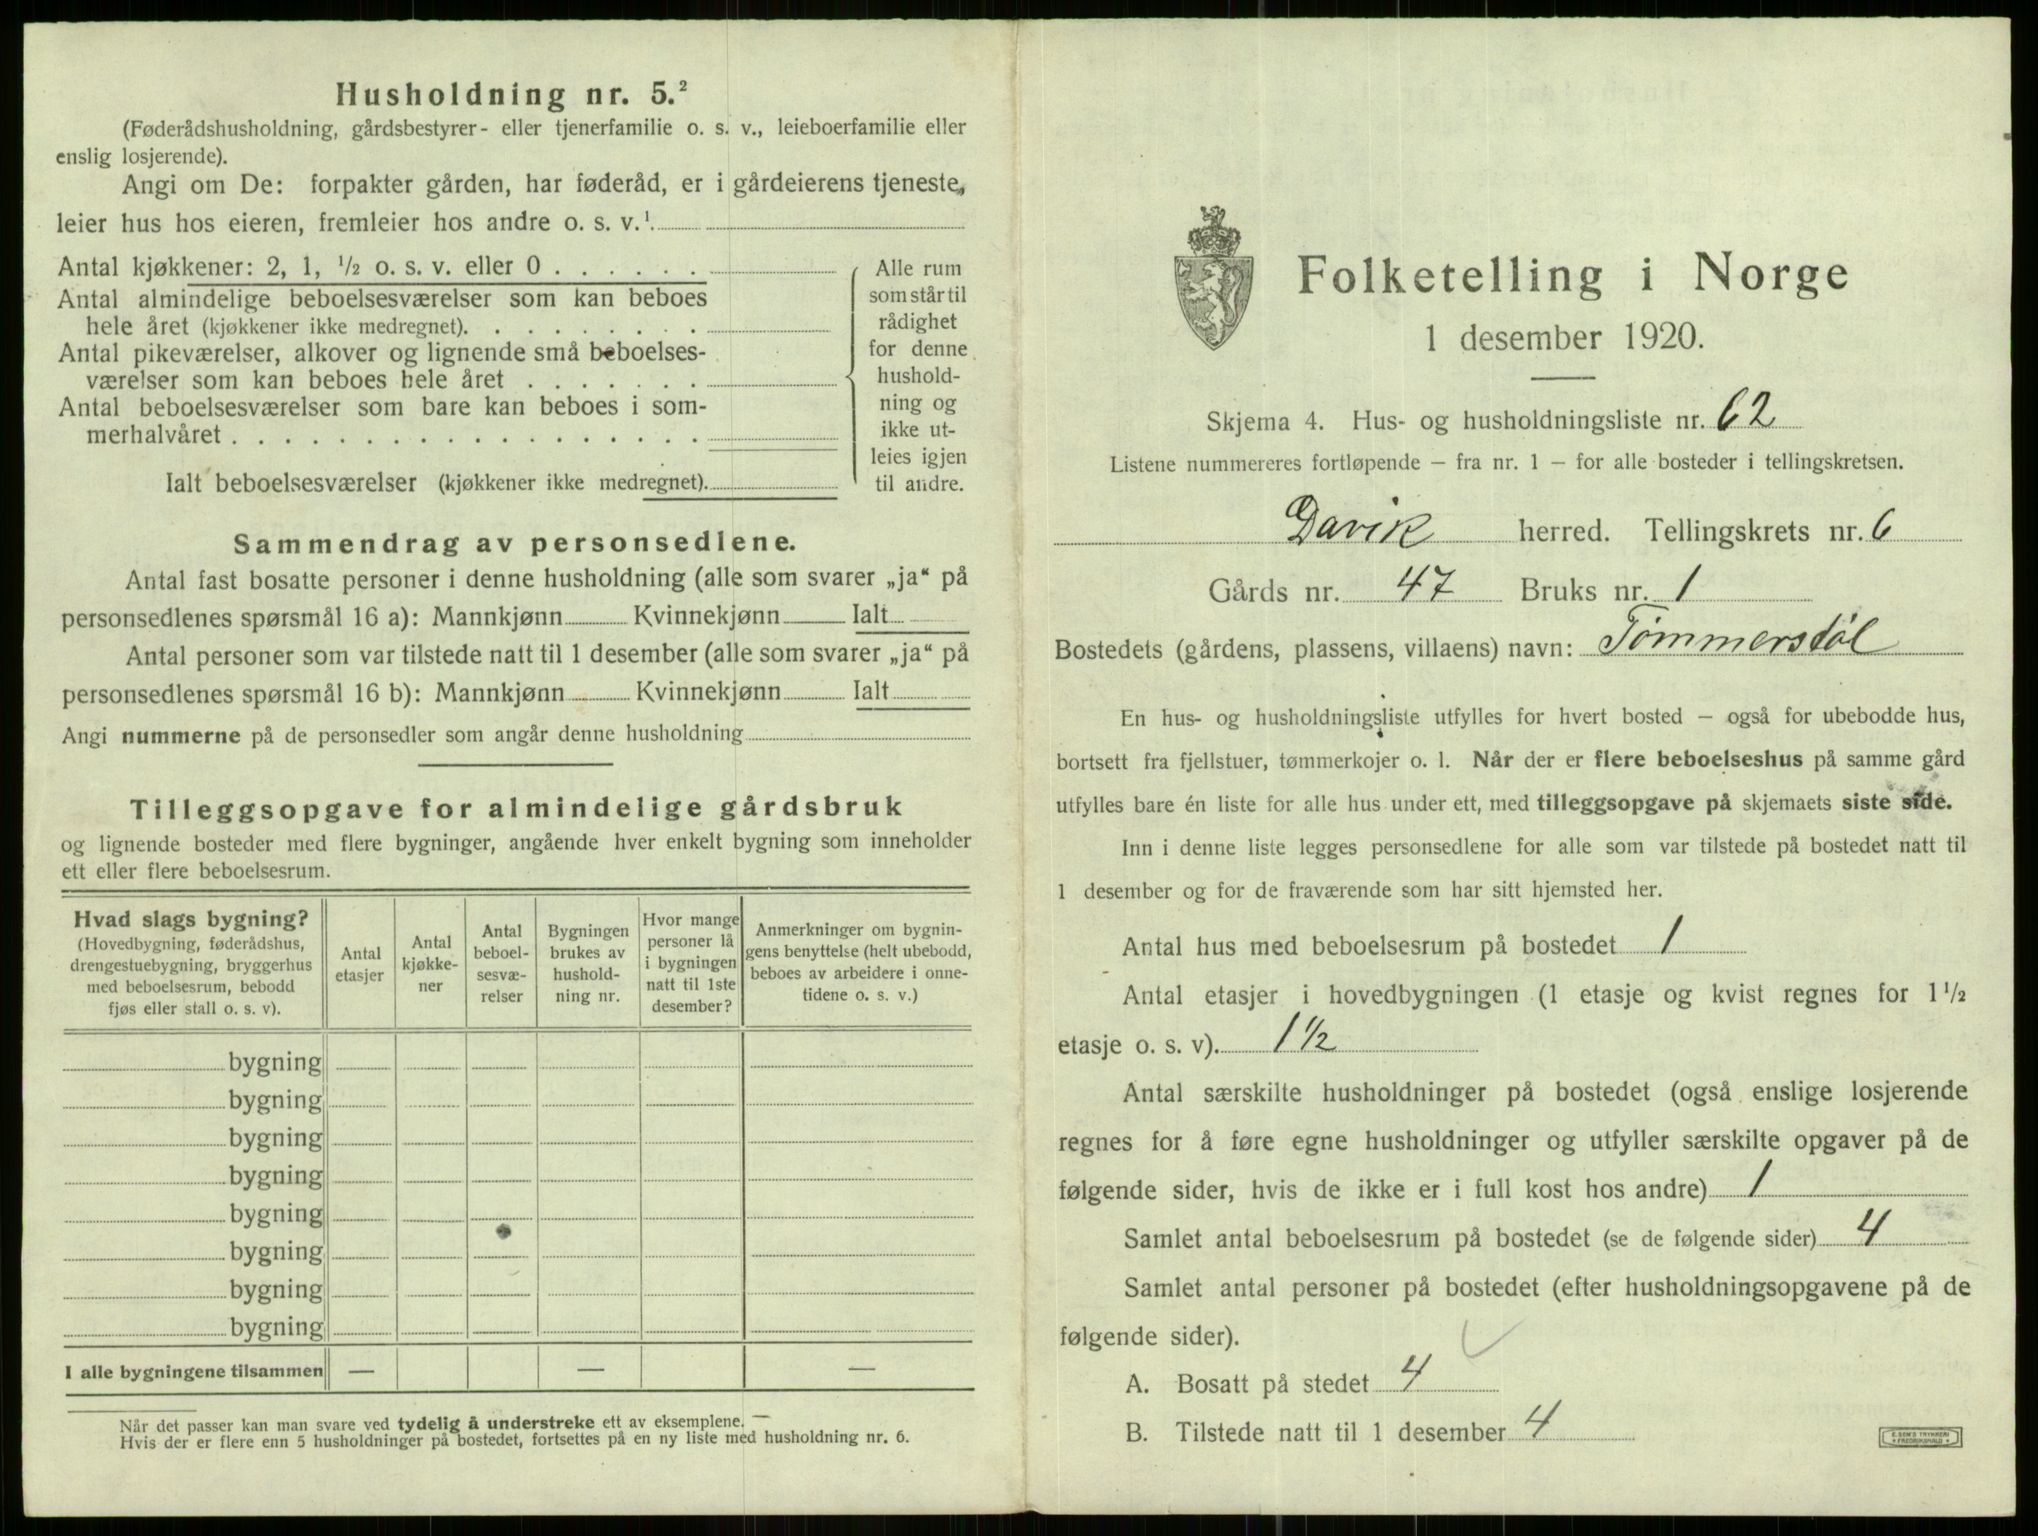 Husholdning nr. 5.²
(Føderådshusholdning, gårdsbestyrer- eller tjenerfamilie o. s. v., leieboerfamilie eller
enslig losjerende).
Angi om De: forpakter gården, har føderåd, er i gårdeierens tjeneste,
leier hus hos eieren, fremleier hos andre o. s. v.¹
Antal kjøkkener: 2, 1, ½ o. s. v. eller 0 . . . . . .
Antal almindelige beboelsesværelser som kan beboes
hele året (kjøkkener ikke medregnet). . . . . . . . .
Antal pikeværelser, alkover og lignende små beboelses-
værelser som kan beboes hele året . . . . . . .
Antal beboelsesværelser som bare kan beboes i som-
merhalvåret . . . . . . . . . . . . . . . . . .
Ialt beboelsesværelser (kjøkkener ikke medregnet).
Alle rum
som står til
rådighet
for denne
hushold-
ning og
ikke ut-
leies igjen
til andre.
Sammendrag av personsedlene.
Antal fast bosatte personer i denne husholdning (alle som svarer „ja“ på
personsedlenes spørsmål 16 a): Mannkjønn Kvinnekjønn Ialt
Antal personer som var tilstede natt til 1 desember (alle som svarer „ja“ på
personsedlenes spørsmål 16 b): Mannkjønn Kvinnekjønn Ialt
Angi nummerne på de personsedler som angår denne husholdning
Tilleggsopgave for almindelige gårdsbruk
og lignende bosteder med flere bygninger, angående hver enkelt bygning som inneholder
ett eller flere beboelsesrum.
Hvad slags bygning?
(Hovedbygning, føderådshus,
drengestuebygning, bryggerhus
med beboelsesrum, bebodd
fjøs eller stall o. s. v).
Antal
etasjer
Antal
kjøkke-
ner
Antal
beboel-
sesvæ-
relser
Bygningen
brukes av
hushold-
ning nr.
Hvor mange
personer lå
i bygningen
natt til 1ste
desember?
Anmerkninger om bygnin-
gens benyttelse (helt ubebodd,
beboes av arbeidere i onne-
tidene o. s. v.)
bygning
bygning
bygning
bygning
bygning
bygning
bygning
bygning
I alle bygningene tilsammen — — —
Når det passer kan man svare ved tydelig å understreke ett av eksemplene. —
Hvis der er flere enn 5 husholdninger på bostedet, fortsettes på en ny liste med husholdning nr. 6.
Folketelling i Norge
1 desember 1920.
Skjema 4. Hus- og husholdningsliste nr. 62
Listene nummereres fortløpende – fra nr. 1 – for alle bosteder i tellingskretsen.
Davik herred. Tellingskrets nr. 6
Gårds nr. 47 Bruks nr. 1
Bostedets (gårdens, plassens, villaens) navn: Tømmerstøl
En hus- og husholdningsliste utfylles for hvert bosted – også for ubebodde hus,
bortsett fra fjellstuer, tømmerkojer o. l. Når der er flere beboelseshus på samme gård
utfylles bare én liste for alle hus under ett, med tilleggsopgave på skjemaets siste side.
Inn i denne liste legges personsedlene for alle som var tilstede på bostedet natt til
1 desember og for de fraværende som har sitt hjemsted her.
Antal hus med beboelsesrum på bostedet 1
Antal etasjer i hovedbygningen (1 etasje og kvist regnes for 1½
etasje o. s. v). 1½
Antal særskilte husholdninger på bostedet (også enslige losjerende
regnes for å føre egne husholdninger og utfyller særskilte opgaver på de
følgende sider, hvis de ikke er i full kost hos andre) 1
Samlet antal beboelsesrum på bostedet (se de følgende sider) 4
Samlet antal personer på bostedet (efter husholdningsopgavene på de
følgende sider).
A. Bosatt på stedet 4
B. Tilstede natt til 1 desember 4
E. SEM'S TRYKKERI
FREDRIKSHALD